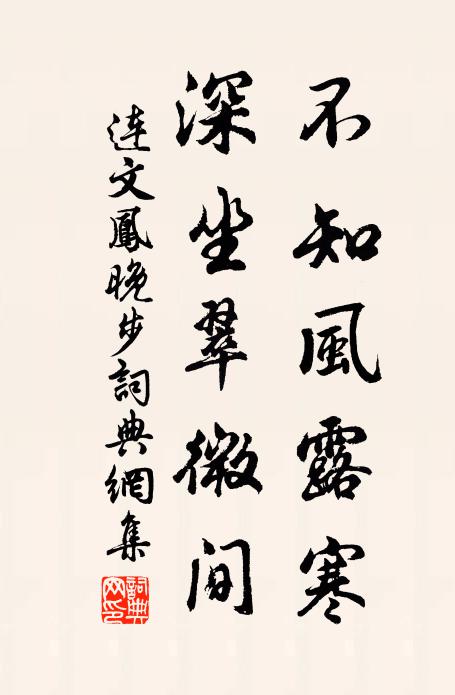 不知風露寒
深坐翠微間
連文鳳晚步詞典網集
詞典
网印